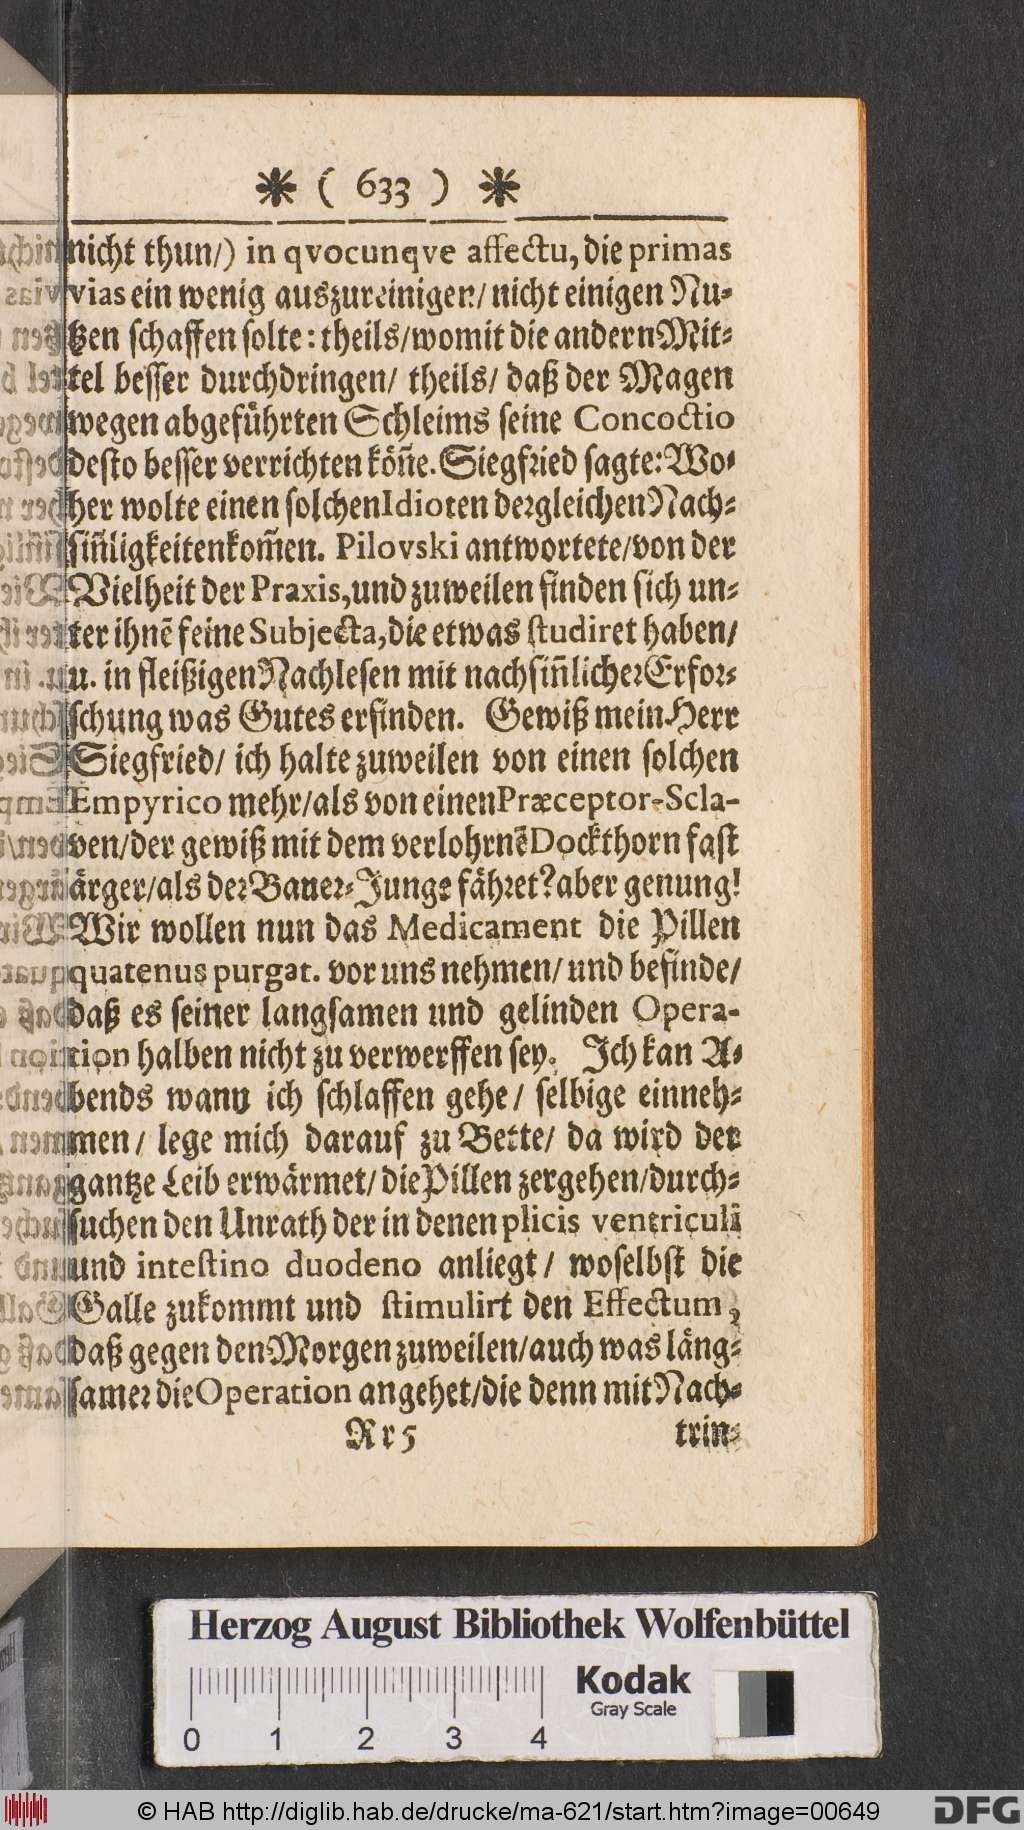 * ( 633 ) *
nicht thun/) in qvocunqve affectu, die primas
vias ein wenig auszureinigen/ nicht einigen Nu-
tzen schaffen solte: theils/ womit die andern Mit-
tel besser durchdringen/ theils/ daß der Magen
wegen abgeführten Schleims seine Concoctio
desto besser verrichten köñe. Siegfried sagte: Wo-
her wolte einen solchen Idioten dergleichen Nach-
siñligkeiten kom̃en. Pilovski antwortete/ von der
Vielheit der Praxis, und zuweilen finden sich un-
ter ihnẽ feine Subjecta, die etwas studiret haben/
u. in fleißigen Nachlesen mit nachsiñlicher Erfor-
schung was Gutes erfinden. Gewiß mein Herr
Siegfried/ ich halte zuweilen von einen solchen
Empyrico mehr/ als von einen Præceptor-Scla-
ven/ der gewiß mit dem verlohrnẽ Dockthorn fast
ärger/ als der Bauer-Junge fähret? aber genung!
Wir wollen nun das Medicament die Pillen
quatenus purgat. vor uns nehmen/ und befinde/
daß es seiner langsamen und gelinden Opera-
tion halben nicht zu verwerffen sey. Ich kan A-
bends wann ich schlaffen gehe/ selbige einneh-
men/ lege mich darauf zu Bette/ da wird der
gantze Leib erwärmet/ die Pillen zergehen/ durch-
suchen den Unrath der in denen plicis ventriculi
und intestino duodeno anliegt/ woselbst die
Galle zukommt und stimulirt den Effectum,
daß gegen den Morgen zuweilen/ auch was läng-
samer die Operation angehet/ die denn mit Nach-
Rr 5 trin-
Herzog August Bibliothek Wolfenbüttel
Kodak
Gray Scale
0 1 2 3 4
© HAB http://diglib.hab.de/drucke/ma-621/start.htm?image=00649
DFG